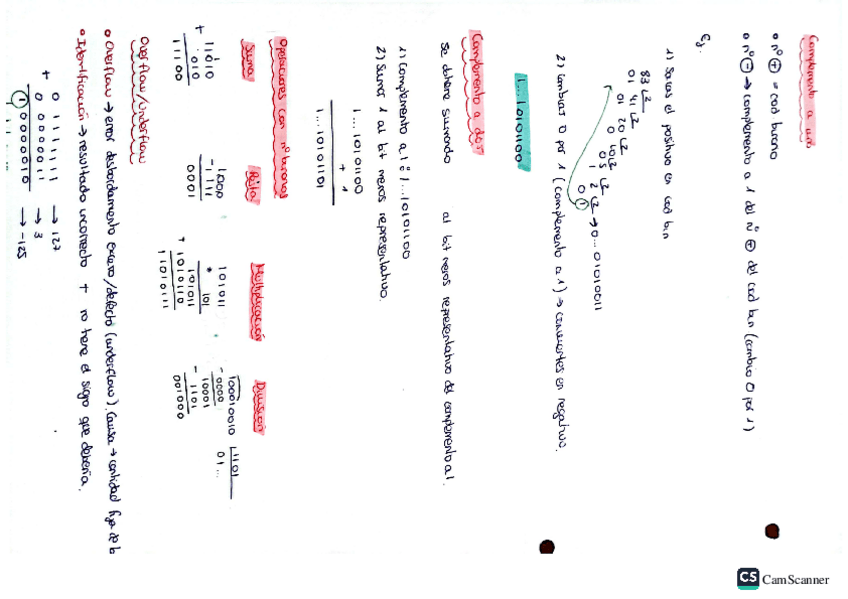 Complemento a uno
• nº ⊕ = cod binario
• nº ⊖ → complemento a 1 del nº ⊕ del cod bin (cambio 0 por 1)
Ej.
1) Sacas el positivo en cod bin
83 L2
01 41 L2
01 20 L2
0 10 L2
0 5 L2
1 2 L2
0 1 → 0...01010011
2) Cambias 0 por 1 (complemento a 1) → conviertes en negativo.
1...10101100
Complemento a dos
Se obtiene sumando al bit menos representativo del complemento a 1.
1) Complemento a 1: 1...10101100
2) Sumar 1 al bit menos representativo.
1...10101100
+ 1
1...10101101
Operaciones con nº binarios
Suma Resta Multiplicación División
11010
+ 010
11100
1000
- 1111
0001
101011
* 101
101011
+ 1010110
11010111
100010010 L1101
- 0000 01...
10001
- 1101
001000
Overflow/underflow
• Overflow → error desbordamiento exceso/defecto (underflow). Causa → cantidad fija de b
• Identificación → resultado incorrecto + no tiene el signo que debería.
0 1111111 → 127
+ 0 0000011 → 3
1 0000010 → -125
CS CamScanner